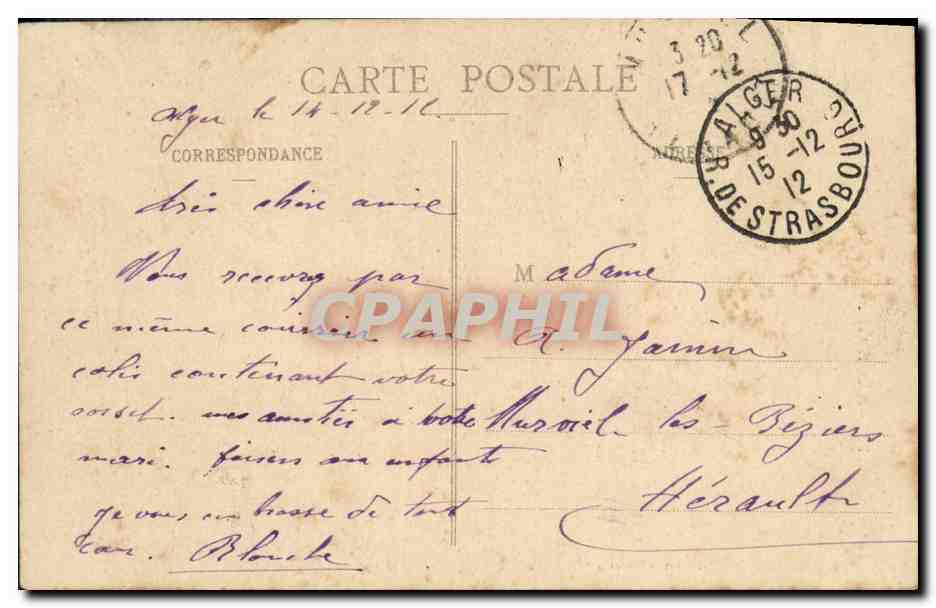 CARTE POSTALE
Alger le 14-12-12
CORRESPONDANCE
très chère amie
Vous recevrez par
ce même courrier un
colis contenant votre
corset. mes amitiés à votre
mari. baisers aux enfants
je vous embrasse de tout
cœur. Blanche
ADRESSE
Madame
A. Jamme
Murviel-les-Béziers
Hérault
3 20
17 -12
ALGER
9 30
15 -12
12
R. DE STRASBOURG
CPAPHIL